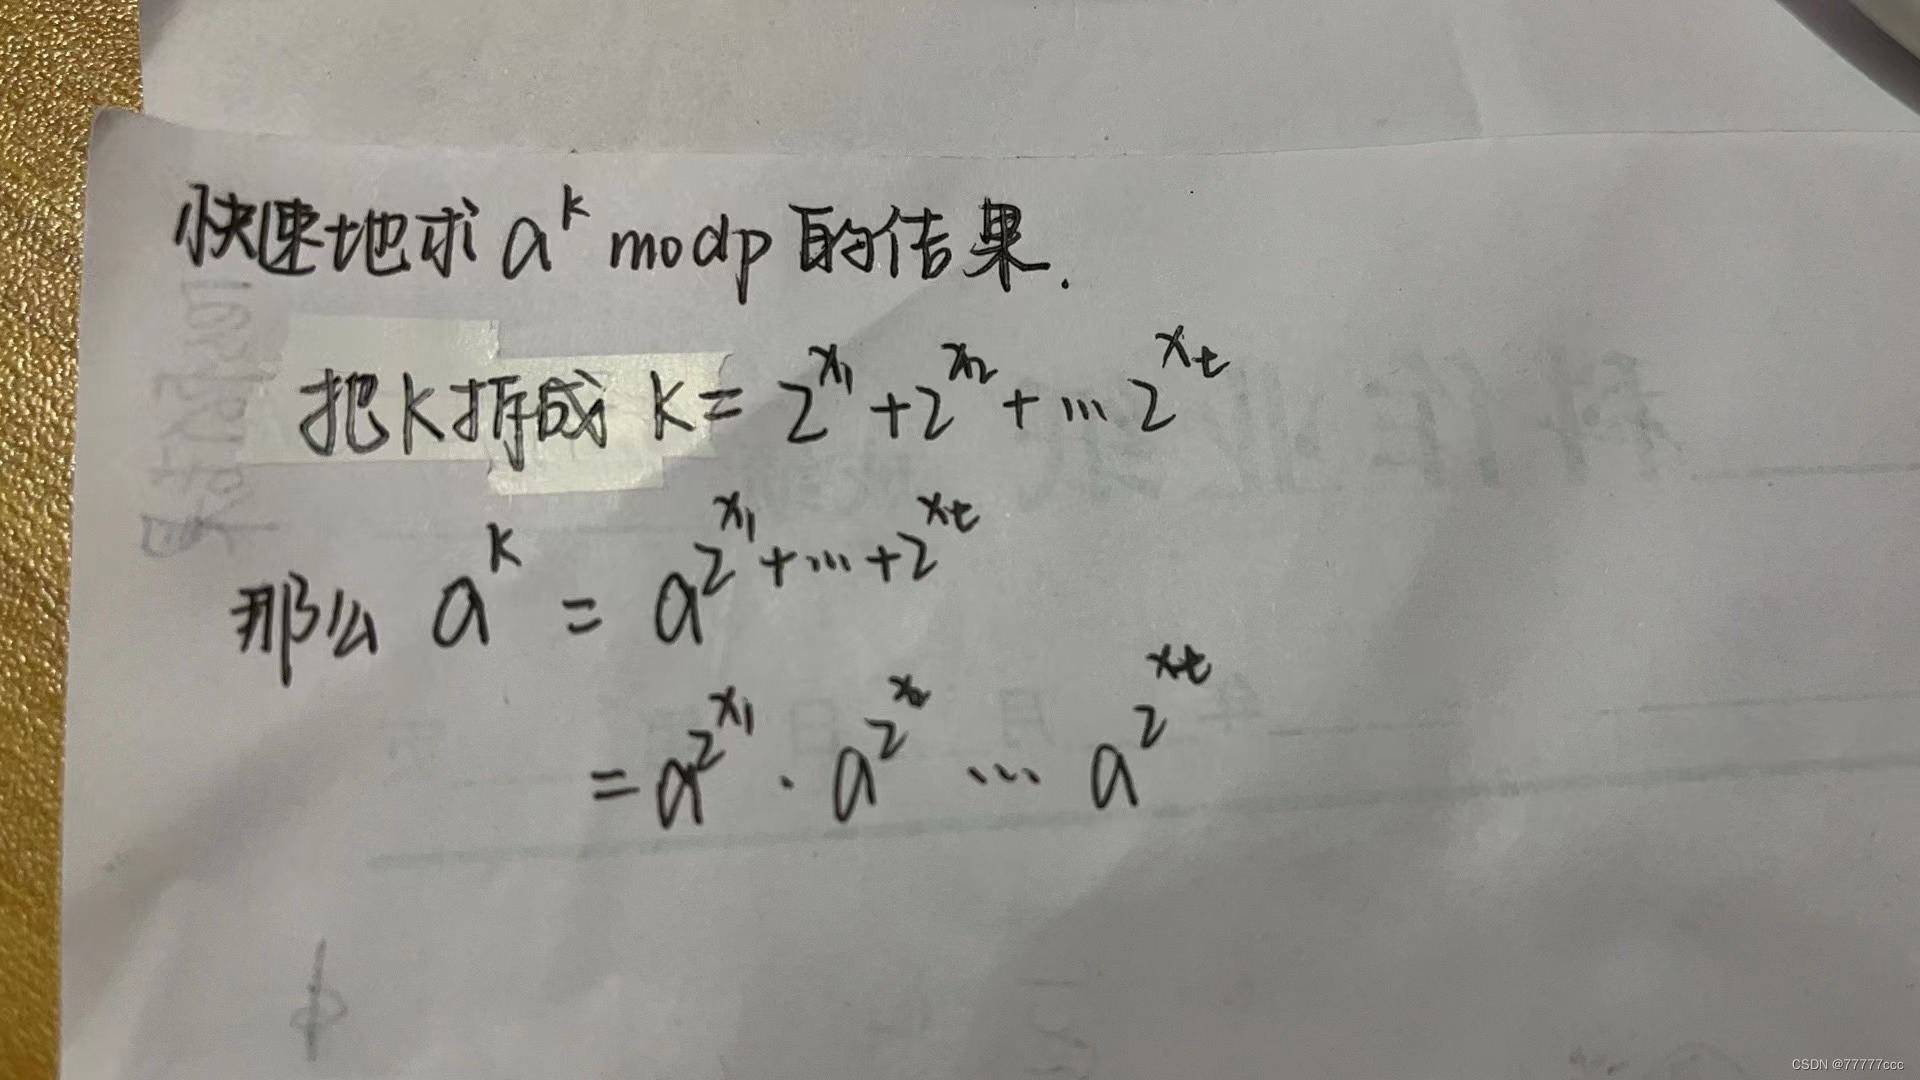 快速地求 a^k mod p 的结果.
把k拆成 k = 2^{x_1} + 2^{x_2} + … 2^{x_t}
那么 a^k = a^{2^{x_1} + … + 2^{x_t}}
= a^{2^{x_1}} · a^{2^{x_2}} … a^{2^{x_t}}
CSDN @77777ccc